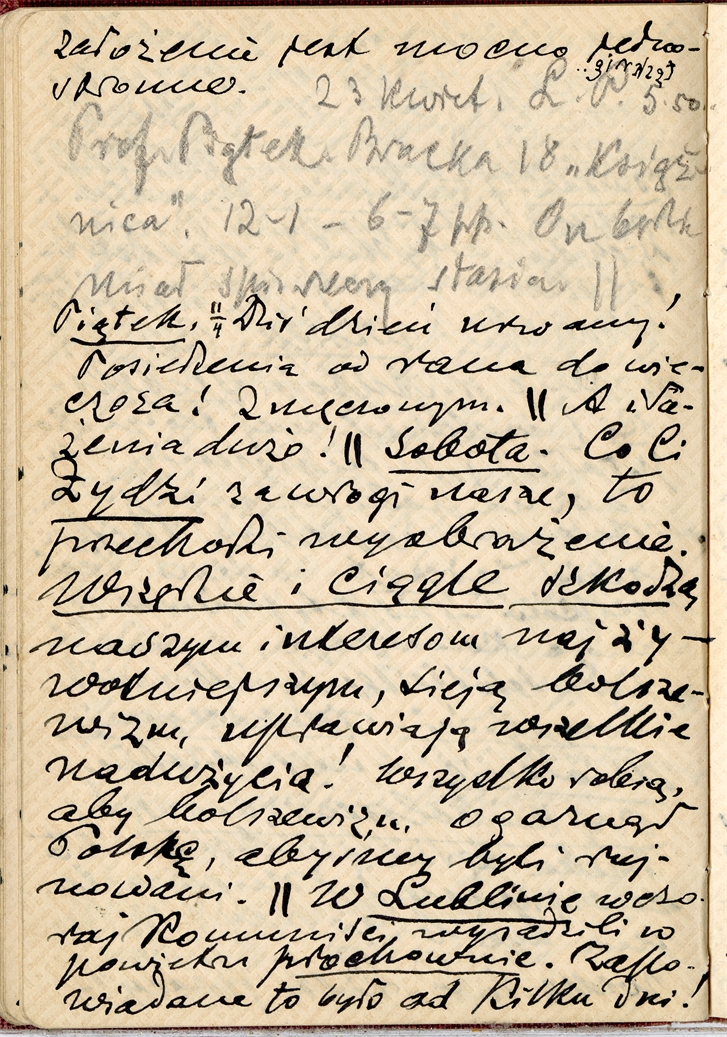 założenie jest mocno jedno-
stronne.
23 kwiet. L. P. 5.50
Prof. Piątek. Bracka 18 „Książ-
nica". 12-1 – 6-7 pp. On
miał Stasia ||
Piątek. 11/4 Dziś dzień urwany!
Posiedzenia od rana do wie-
czora! Zmęczonym. || A
dużo! || Sobota. Co Ci
Żydzi za wrogi nasze, to
przechodzi wyobrażenie.
Wszędzie i ciągle szkodzą
naszym interesom najży-
wotniejszym, sieją bolsze-
wizm, uprawiają wszelkie
nadużycia! Wszystko robią,
aby bolszewizm ogarnął
Polskę, abyśmy byli ruj-
nowani. || W Lublinie wczo-
raj Komuniści wysadzili w
powietrze prochownię. Zapo-
wiadane to było od kilku dni!